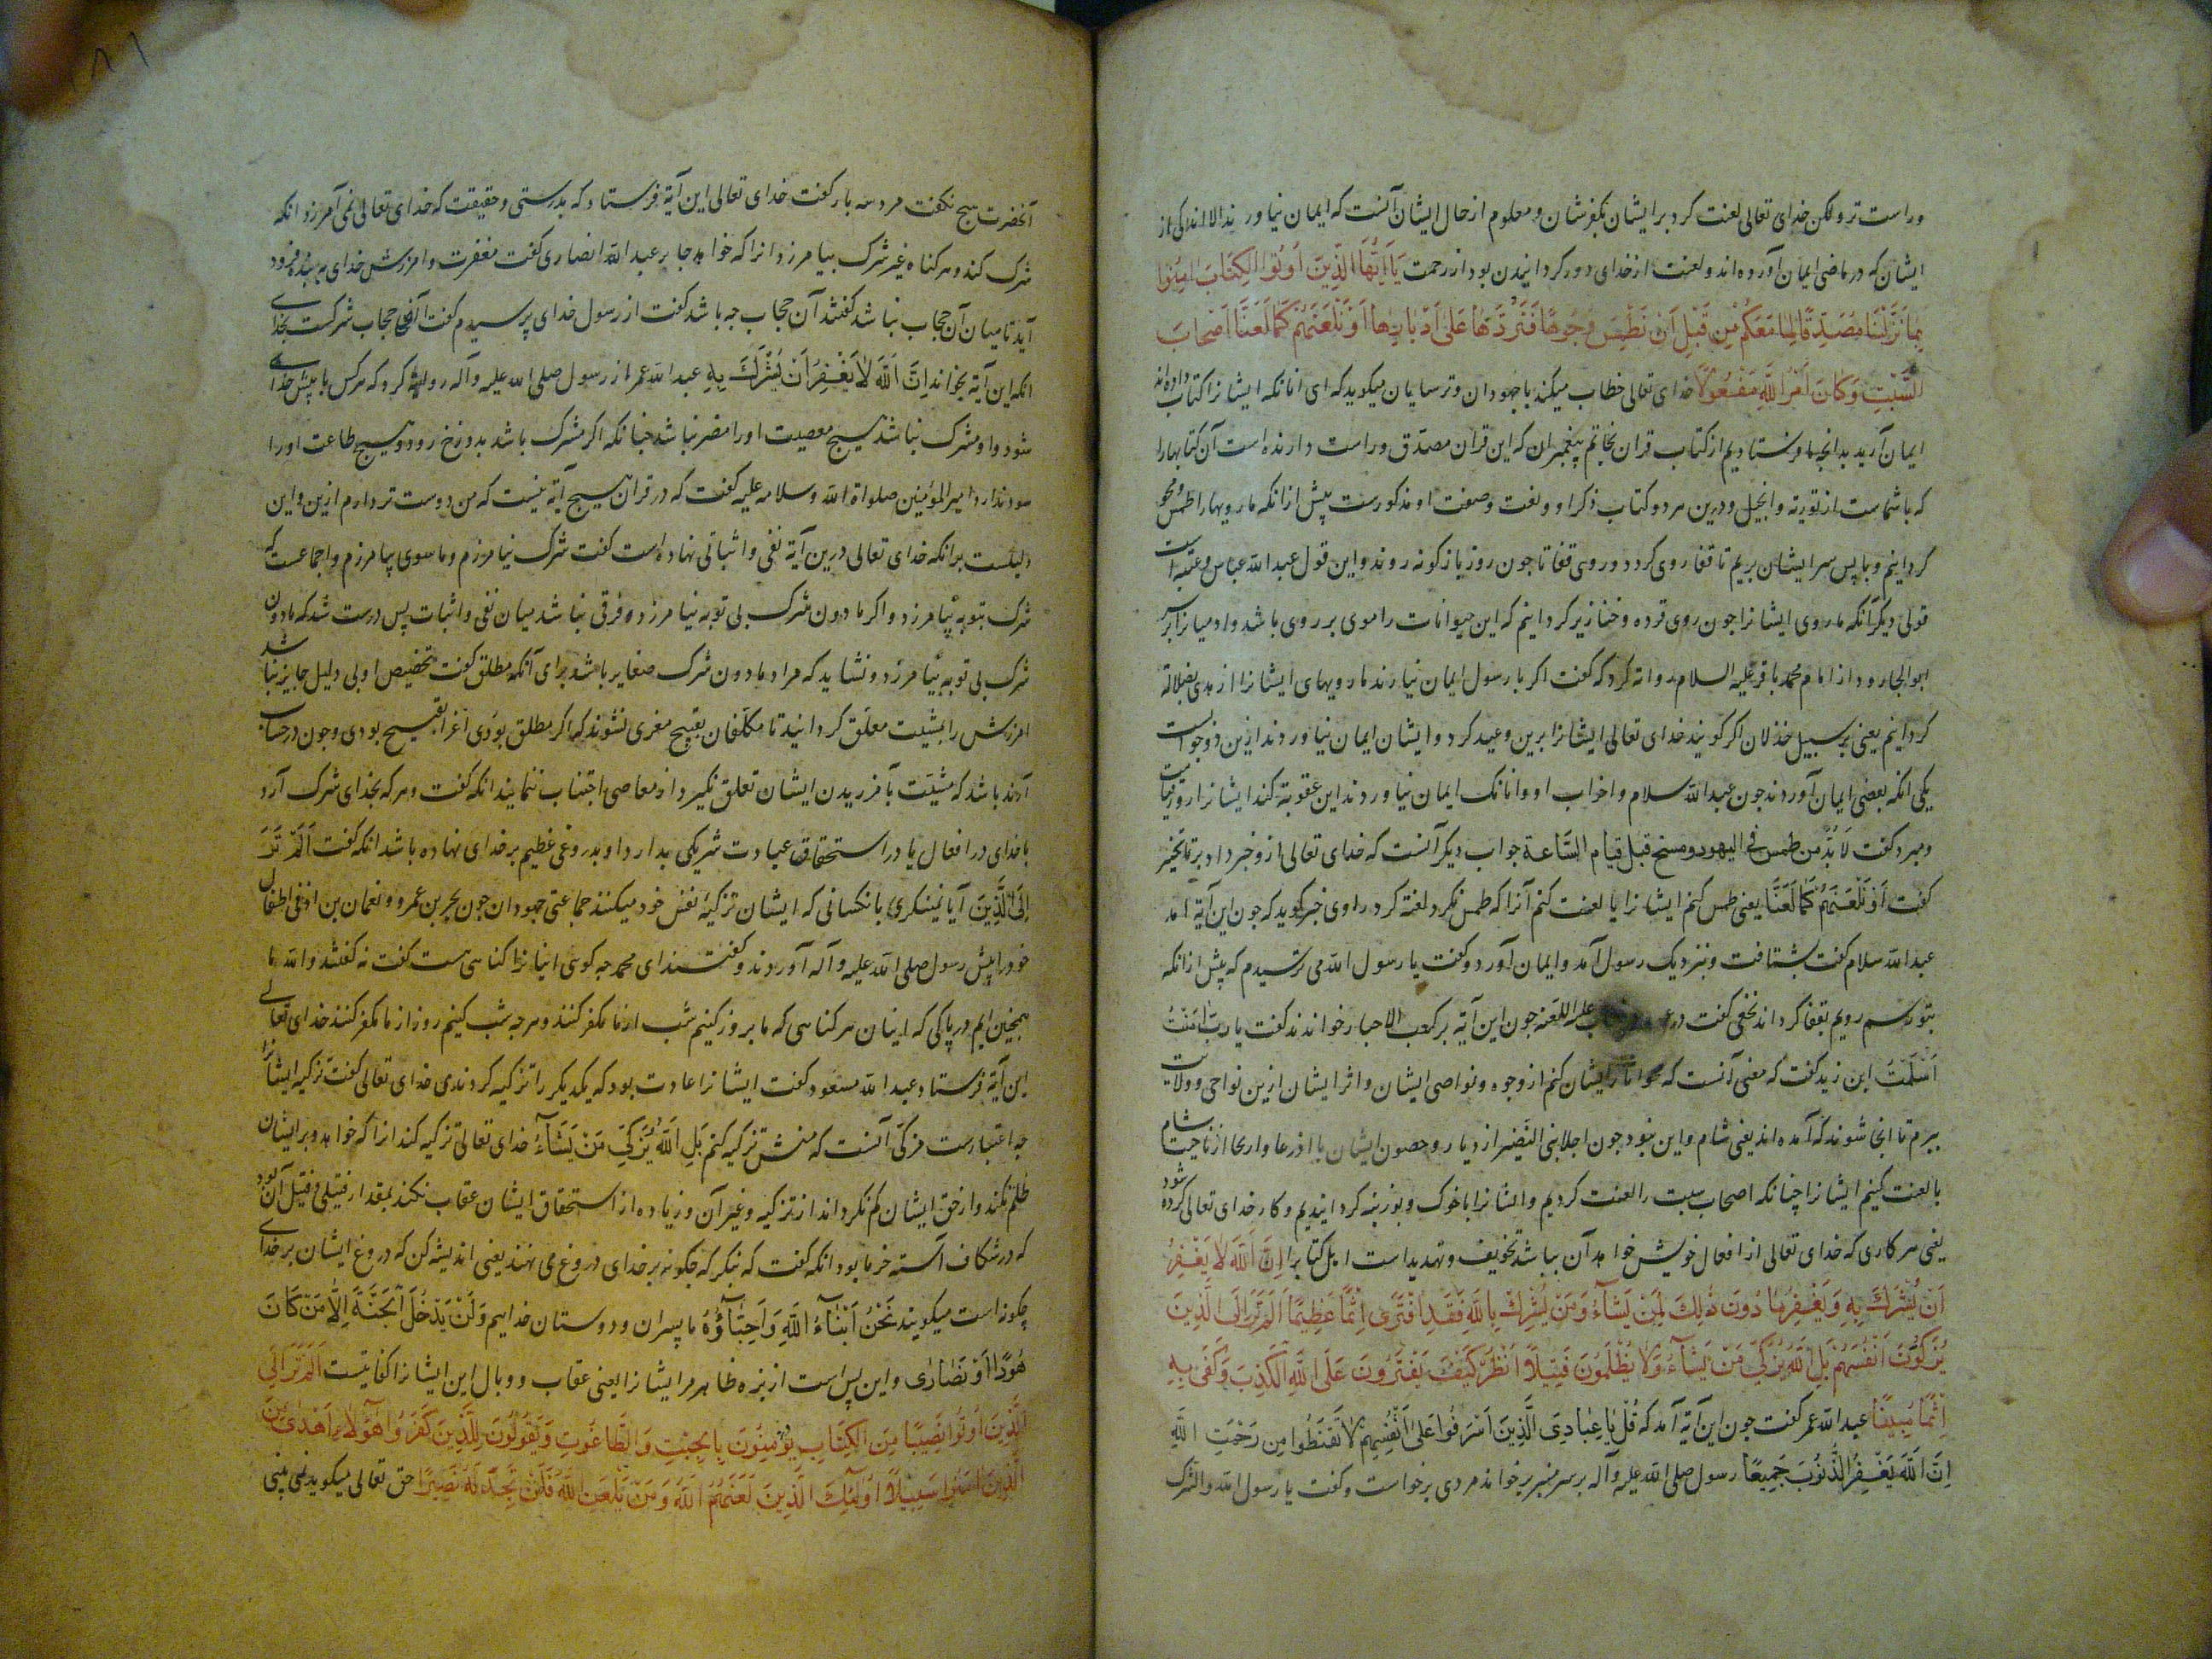 وراست تر ولكن خدای تعالی لعنت كرد بر ایشان بكفرشان و معلوم از حال ایشان آنست كه ایمان نیاورند الا اندكی از
ایشان كه در ماضی ایمان آورده اند و لعنت از خدای دور كردانیدن بود از رحمت یَا اَیُّهَا الَّذِینَ اُوتُوا الْكِتَابَ اٰمِنُوا
بِمَا نَزَّلْنَا مُصَدِّقًا لِمَا مَعَكُمْ مِنْ قَبْلِ اَنْ نَطْمِسَ وُجُوهًا فَنَرُدَّهَا عَلٰی اَدْبَارِهَا اَوْ نَلْعَنَهُمْ كَمَا لَعَنَّا اَصْحَابَ
السَّبْتِ وَكَانَ اَمْرُ اللَّهِ مَفْعُولًا خدای تعالی خطاب میكند با جهودان و ترسایان میكوید كه ای انانكه ایشانرا كتاب داده اند
ایمان آرید بدانچه ما فرستادیم از كتاب قران بخاتم پیغمبران كه این قران مصدّق و راست دارنده است آن كتابها را
كه با شماست از توریة و انجیل و درین هر دو كتاب ذكر او و نعت و صفت او مذكورست پیش از انكه ما رویها را طمس و محو
كردانیم و با پس سر ایشان بریم تا قفا روی كردد و روی قفا تا چون روز باز كونه روند و این قول عبد الله عباس و عتبه است
قولی دیكر آنكه ما روی ایشانرا چون روی قرده و خنازیر كردانیم كه این حیوانات را موی بر روی باشد و ادمیانرا بر سر
ابو الجارود از امام محمد باقر علیه السلام روایة كرد كه كفت اكر با رسول ایمان نیارند ما رویهای ایشانرا از هدی بضلالة
كردانیم یعنی بر سبیل خذلان اكر كویند خدای تعالی ایشانرا برین وعید كرد و ایشان ایمان نیاوردند ازین دو جوابست
یكی انكه بعضی ایمان آوردند چون عبد الله سلام و اخواب او و انانك ایمان نیاوردند این عقوبة كند ایشانرا روز قیامت
و مبرد كفت لَا بُدَّ مِن طمسٍ فی الیهود و مسخ قبل قیام السَّاعة جواب دیكر آنست كه خدای تعالی ازو خبر داد بر تخییر
كفت اَوْ نَلْعَنَهُمْ كَمَا لَعَنَّا یعنی طمس كنم ایشانرا یا لعنت كنم آنرا كه طمس نكرد لعنة كرد راوی خبر كوید كه چون این آیة آمد
عبد الله سلام كفت بشتافت و بنزدیك رسول آمد و ایمان آورد و كفت یا رسول الله می ترسیدم كه پیش از انكه
بتو رسم رویم بقفا كرداند نخعی كفت در چون این آیة بر كعب الاحبار خواندند كفت یا ربّ اٰمَنْتُ
اَسْلَمْتُ ابن زید كفت كه معنی آنست كه ایشان كنم از وجوه و نواصی ایشان و اثر ایشان ازین نواحی و ولایت
ببرم تا انجا شوند كه آمده اند یعنی شام و این نبود چون اجلا بنی النضیر از دیار و حصون ایشان با اذرعا و اریحا از ناحیت شام
یا لعنت كنیم ایشانرا چنانكه اصحاب سبت را لعنت كردیم و ایشانرا با خوك و بوزینه كردانیدیم و كار خدای تعالی كرده شود
یعنی هر كاری كه خدای تعالی از افعال خویش خواهد آن بباشد تخویف و تهدید است اهل كتابرا اِنَّ اللَّهَ لَا یَغْفِرُ
اَنْ یُشْرَكَ بِهِ وَیَغْفِرُ مَا دُونَ ذٰلِكَ لِمَنْ یَشَآءُ وَمَنْ یُشْرِكْ بِاللَّهِ فَقَدِ افْتَرٰی اِثْمًا عَظِیمًا اَلَمْ تَرَ اِلَی الَّذِینَ
یُزَكُّونَ اَنْفُسَهُمْ بَلِ اللَّهُ یُزَكِّی مَنْ یَشَآءُ وَلَا یُظْلَمُونَ فَتِیلًا اُنْظُرْ كَیْفَ یَفْتَرُونَ عَلَی اللَّهِ الْكَذِبَ وَكَفٰی بِهِ
اِثْمًا مُبِینًا عبد الله عمر كفت چون این آیة آمد كه قُلْ یَا عِبَادِیَ الَّذِینَ اَسْرَفُوا عَلٰی اَنْفُسِهِمْ لَا تَقْنَطُوا مِن رَحْمَتِ اللَّهِ
اِنَّ اللَّهَ یَغْفِرُ الذُّنُوبَ جَمِیعًا رسول صلی الله علیه و آله بر سر منبر بر خواند مردی برخواست و كفت یا رسول الله و الشرك
آنحضرت هیچ نكفت مرد سه بار كفت خدای تعالی این آیة فرستاد كه بدرستی و حقیقت كه خدای تعالی نمی آمرزد انكه
شرك كند و هر كناه غیر شرك بیامرزد انرا كه خواهد جابر عبد الله انصاری كفت مغفرت و امرزش خدای بر بنده فرود
آید تا میان آن حجاب نباشد كفتند آن حجاب چه باشد كفت از رسول خدای پرسیدم كفت آن حجاب شركست بخدای
انكه این آیة بخواند اِنَّ اللَّهَ لَا یَغْفِرُ اَنْ یُشْرَكَ بِهِ عبد الله عمر از رسول صلی الله علیه و آله روایة كرد كه هركس با پیش خدای
شود و او مشرك نباشد هیچ معصیت او را مضر نباشد چنانكه اكر مشرك باشد بدوزخ رود و هیچ طاعت او را
سود ندارد امیر المؤمنین صلواة الله و سلامه علیه كفت كه در قران هیچ آیة نیست كه من دوست تر دارم ازین و این
دلیلست بر انكه خدای تعالی درین آیة نفی و اثباتی نهاده است كفت شرك نیامرزم و ما سوی بیامرزم و اجماعست كه
شرك بتوبه بیامرزد و اكر ما دون شرك بی توبه نیامرزد و فرقی نباشد میان نفی و اثبات پس درست شد كه ما دون
شرك بی توبه بیامرزد و نشاید كه مراد ما دون شرك صغایر باشد برای آنكه مطلق كفت تخصیص او بی دلیل جایز نباشد
امرزش را بمشیت معلّق كردانید تا مكلّفان بقبیح مغری نشوند كه اكر مطلق بودی اغرا بقبیح بودی و چون در حساب
آرند باشد كه مشیّت بآفریدن ایشان تعلق نكیرد از معاصی اجتناب نمایند انكه كفت و هر كه بخدای شرك آرد
با خدای در افعال یا در استحقاق عبادت شریكی بدارد او بدروغی عظیم بر خدای نهاده باشد انكه كفت اَلَمْ تَرَ
اِلَی الَّذِینَ آیا نمینكری با نكسانی كه ایشان تزكیۀ نفس خود میكنند جماعتی جهودان چون بحر بن عمرو و نعمان بن اوفی اطفال
خود را پیش رسول صلی الله علیه و آله آوردند و كفتند ای محمد چه كوئی اینانرا كناهی هست كفت نه كفتند والله ما
همچنین ایم در پاكی كه اینان هر كناهی كه ما بروز كنیم شب از ما مكفر كنند و هر چه شب كنیم روز از ما مكفر كنند خدای تعالی
این آیة فرستاد عبد الله مسعود كفت ایشانرا عادت بود كه یكدیكر را تزكیه كردندی خدای تعالی كفت تزكیه ایشانرا
چه اعتبارست مزكّی آنست كه منش تزكیه كنم بَلِ اللَّهُ یُزَكِّی مَنْ یَشَآءُ خدای تعالی تزكیه كند انرا كه خواهد و بر ایشان
ظلم نكند و از حق ایشان كم نكرداند از تزكیه و غیر آن و زیاده از استحقاق ایشان عقاب نكند بمقدار فتیلی و فتیل آن بود
كه در شكاف استه خرما بود انكه كفت كه بنكر كه چكونه بر خدای دروغ می نهند یعنی اندیشه كن كه دروغ ایشان بر خدای
چكونه است میكویند نَحْنُ اَبْنَآءُ اللَّهِ وَاَحِبَّآؤُهُ ما پسران و دوستان خداییم وَلَنْ یَدْخُلَ الْجَنَّةَ اِلَّا مَنْ كَانَ
هُودًا اَوْ نَصَارٰی و این بس است از بزه ظاهر مر ایشانرا یعنی عقاب و وبال این ایشانرا كفایتست اَلَمْ تَرَ اِلَی
الَّذِینَ اُوتُوا نَصِیبًا مِنَ الْكِتَابِ یُؤْمِنُونَ بِالْجِبْتِ وَالطَّاغُوتِ وَیَقُولُونَ لِلَّذِینَ كَفَرُوا هٰٓؤُلَآءِ اَهْدٰی مِنَ
الَّذِینَ اٰمَنُوا سَبِیلًا اُولٰٓئِكَ الَّذِینَ لَعَنَهُمُ اللَّهُ وَمَنْ یَلْعَنِ اللَّهُ فَلَنْ تَجِدَ لَهُ نَصِیرًا حق تعالی میكوید نمی بینی